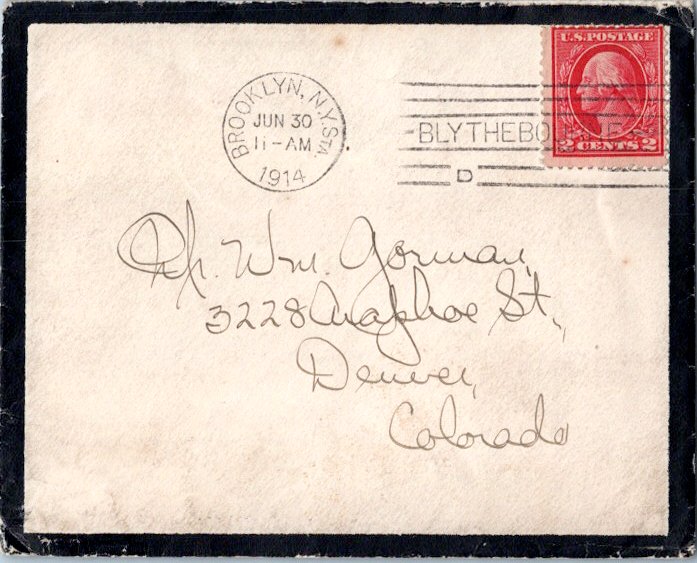 U.S. POSTAGE
2 CENTS 2
BROOKLYN, N.Y. STA.
JUN 30
11-AM
1914
BLYTHEBOURNE
D
Wm. Gorman,
3228 Arapahoe St.,
Denver,
Colorado